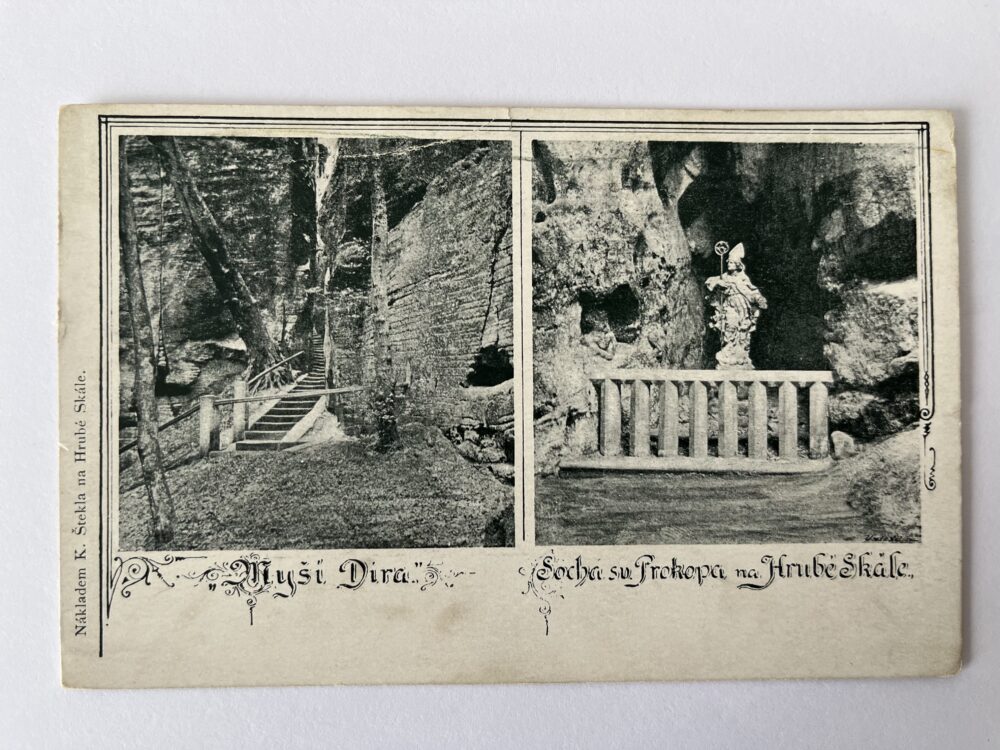 Nákladem K. Štekla na Hrubé Skále.
„Myší Díra“
Socha sv. Prokopa na Hrubé Skále.